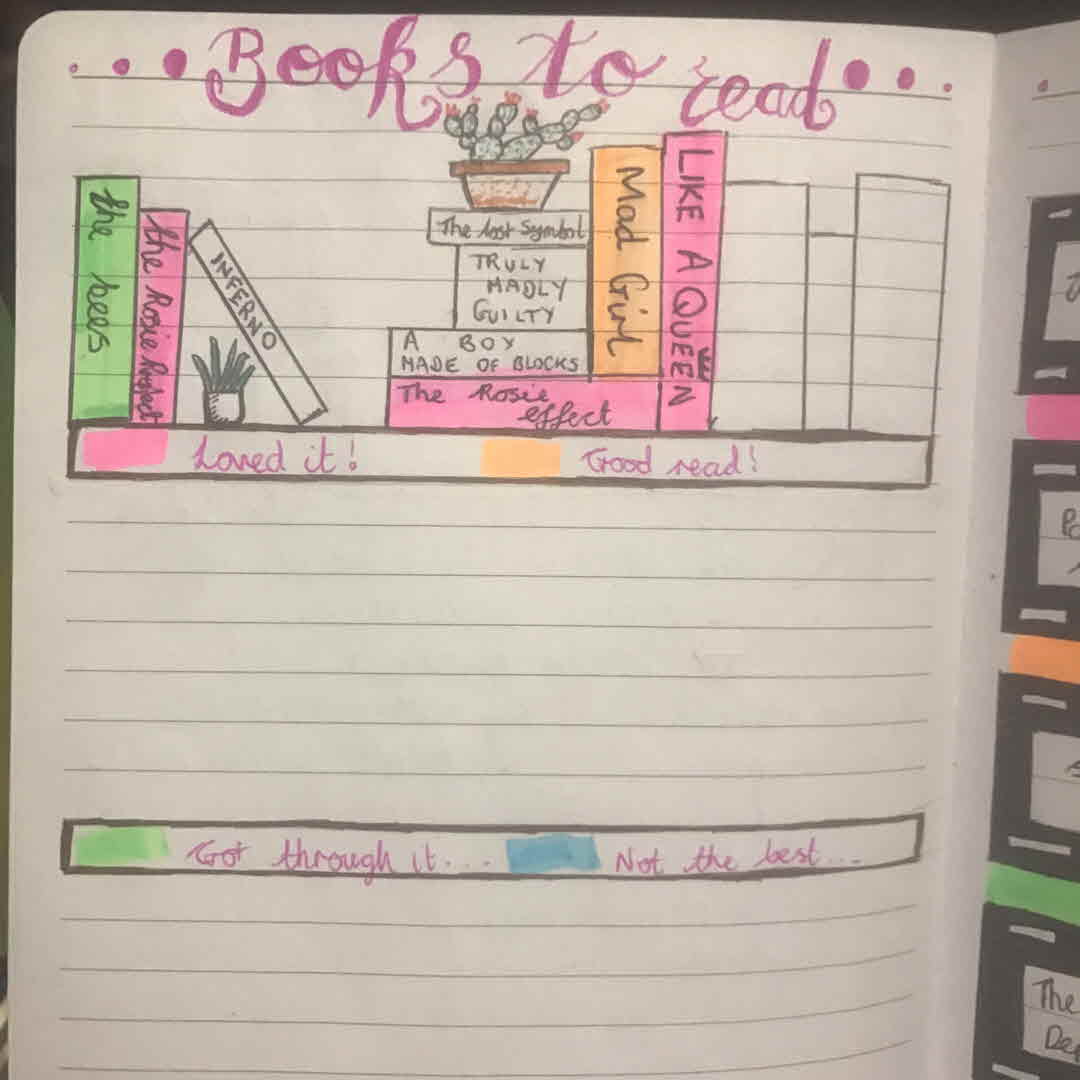 Books to read
the bees
the Rosie Project
INFERNO
The lost Symbol
TRULY
MADLY
GUILTY
A BOX
MADE OF BLOCKS
The Rosie
effect
Mad Girl
LIKE A QUEEN
Loved it!
Good read!
Got through it...
Not the best...
The